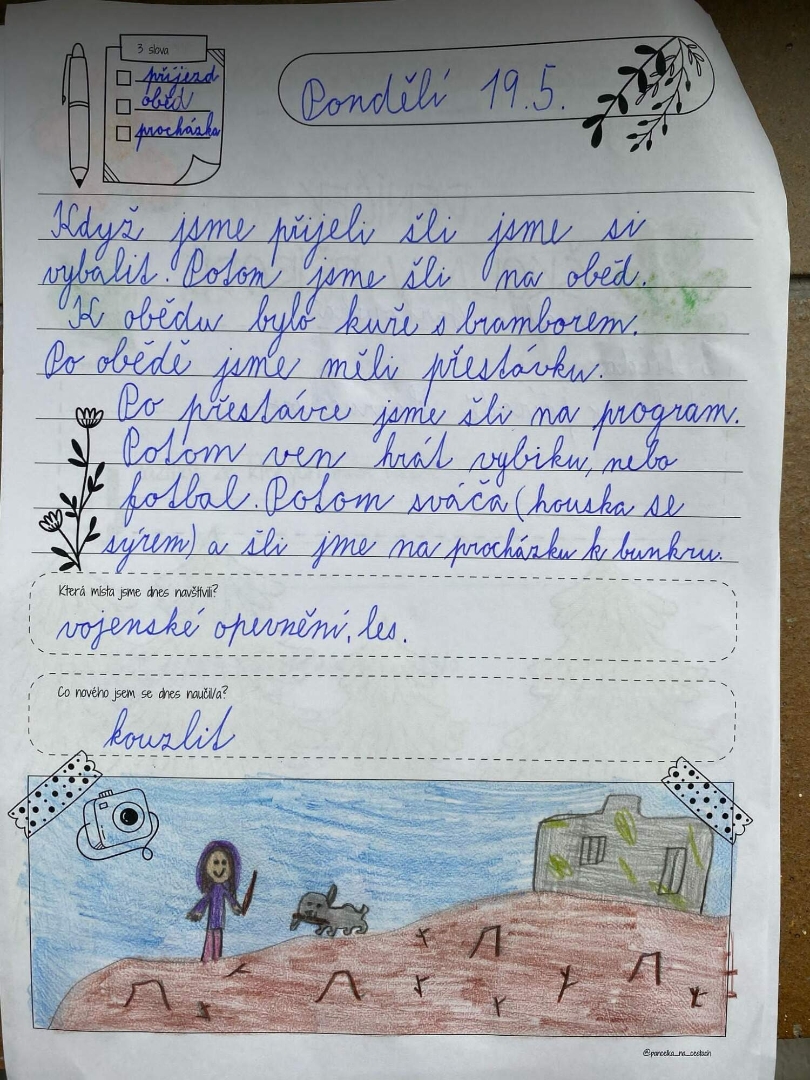 3 slova
příjezd
oběd
procházka
Pondělí 19.5.
Když jsme přijeli šli jsme si
vybalit. Potom jsme šli na oběd.
K obědu bylo kuře s bramborem.
Po obědě jsme měli přestávku.
Po přestávce jsme šli na program.
Potom ven hrát vybiku, nebo
fotbal. Potom sváča (houska se
sýrem) a šli jme na procházku k bunkru.
Která místa jsme dnes navštívili?
vojenské opevnění, les.
Co nového jsem se dnes naučil/a?
kouzlit
@pancelka_na_cestach